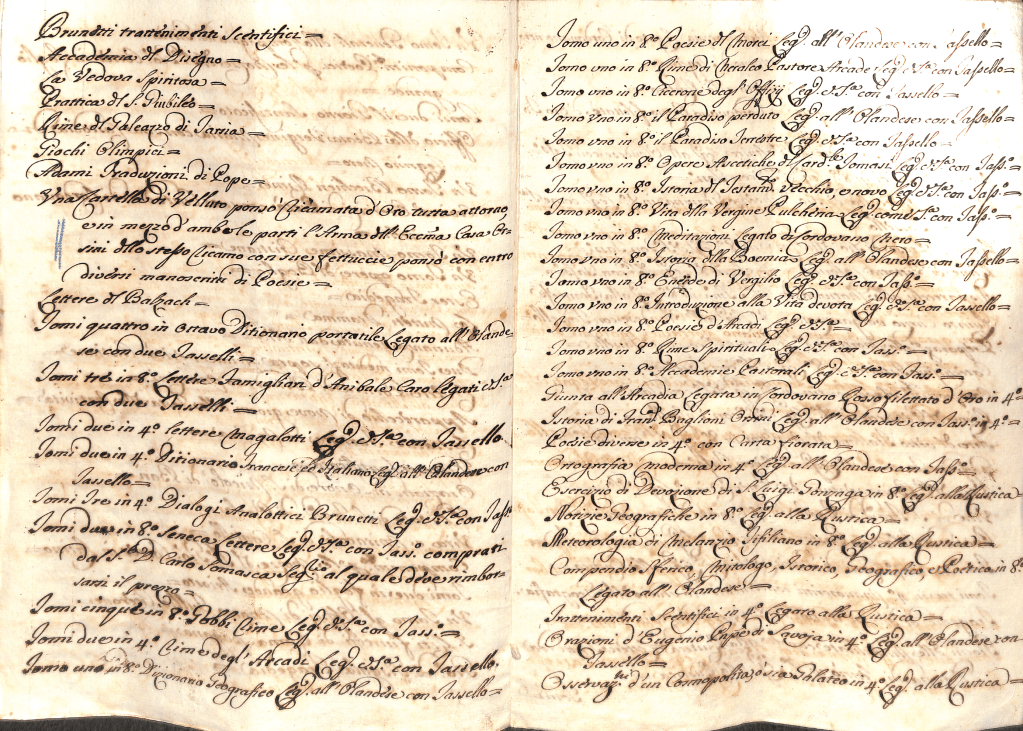 Brunetti trattenimenti Scentifici =
Accademia del Disegno =
La Vedova Spiritosa =
Prattica del S. Giubileo =
Rime del Galeazzo di Tarsia =
Giochi Olimpici =
Adami Traduzioni di Pope =
Una Cartella di Velluto ponsò Ricamata d'Oro tutta attorno,
e in mezzo d'ambe le parti l'Arma dell'Eccma Casa Or-
sini dello stesso Ricamo con sue fettuccie ponsò con entro
diversi manoscritti di Poesie =
Lettere del Balzach =
Tomi quattro in ottavo Ditionario portatile Legato all'Olande-
se con due Tasselli =
Tomi tre in 8º Lettere Famigliari d'Anibale Caro legati
con due Tasselli =
Tomi due in 4º lettere Magalotti Leg. con Tassello
Tomi due in 4º Ditionario Francese, et Italiano Leg. all'Olandese con
Tassello =
Tomi Tre in 4º Dialogi Analottici Brunetti Leg. con Tass.
Tomi due in 8º Seneca Lettere Leg. con Tass. comprati
dal D. Carlo Tomasca al quale deve rimbor-
sarsi il prezzo =
Tomi cinque in 8º Gobbi Rime Leg. con Tass. =
Tomi due in 4º Rime degl'Arcadi Leg. con Tassello.
Tomo uno in 8º Dizionario Geografico Leg. all'Olandese con Tassello =
Tomo uno in 8º Poesie del Morei Leg. all'Olandese con Tassello =
Tomo uno in 8º Rime di Pastore Arcade Leg. con Tassello =
Tomo uno in 8º Cicerone degl'Offizij Leg. con Tassello =
Tomo uno in 8º il Paradiso perduto Leg. all'Olandese con Tassello =
Tomo uno in 8º il Paradiso Terrestre Leg. con Tassello =
Tomo uno in 8º Opere Ascetiche di Card. Tomasi Leg. con Tass. =
Tomo uno in 8º Istoria del Testam. Vecchio, e novo Leg. con Tass. =
Tomo uno in 8º Vita della Vergine Pulcheria Leg. con Tass. =
Tomo uno in 8º Meditazioni Legato di Cordovano Nero =
Tomo uno in 8º Istoria della Boemia Leg. all'Olandese con Tassello =
Tomo uno in 8º Eneide di Vergilio Leg. con Tass. =
Tomo uno in 8º Introduzione alla Vita devota Leg. con Tassello =
Tomo uno in 8º Poesie d'Arcadi Leg. =
Tomo uno in 8º Rime Spirituali Leg. con Tass. =
Tomo uno in 8º Accademie Pastorali Leg. con Tass. =
Giunta all'Arcadia Legata in Cordovano Rosso filettato d'Oro in 4º =
Istoria di Fran. Baglioni Orsini Leg. all'Olandese con Tass. in 4º =
Poesie diverse in 4º con Carta fiorata =
Ortografia moderna in 4º Leg. all'Olandese con Tass. =
Esercizio di Devozione di S. Luigi Gonzaga in 8º Leg. alla Rustica =
Notizie Geografiche in 8º Leg. alla Rustica =
Meteorologia di Melanzio Tifiliano in 8º Leg. alla Rustica =
Compendio Sferico, Mitologo, Istorico, Geografico, e Poetico in 8º
Legato all'Olandese =
Trattenimenti Scentifici in 4º Legato alla Rustica =
Orazioni d'Eugenio Pnpe di Savoja in 4º Leg. all'Olandese con
Tassello =
Osservaz. d'un Cosmopolita o sia Galateo in 4º Leg. alla Rustica =